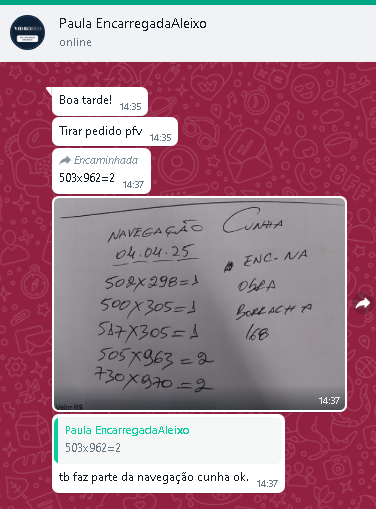 Paula EncarregadaAleixo
online
Boa tarde!
14:35
Tirar pedido pfv
14:35
Encaminhada
503x962=2
14:37
NAVEGAÇÃO CUNHA
04.04.25
502x298=1
500x305=1
517x305=1
505x963=2
730x970=2
ENC-NA
OBRA
BORRACHA
168
14:37
Paula EncarregadaAleixo
503x962=2
tb faz parte da navegação cunha ok.
14:37